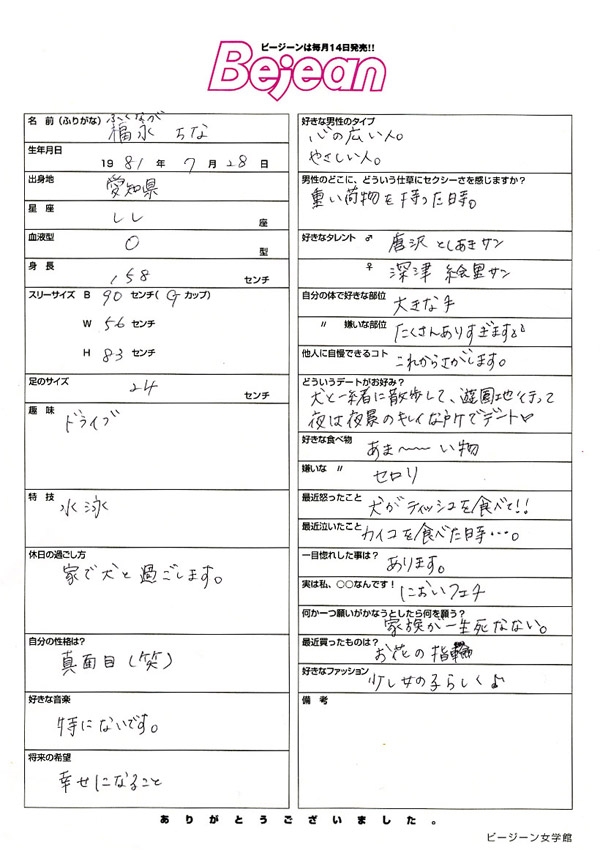 ビージーンは毎月14日発売!!
Bejean
名 前 (ふりがな) ふくなが
福永 ちな
生年月日
1981年 7月 28日
出身地
愛知県
星 座
しし 座
血液型
O 型
身 長
158 センチ
スリーサイズ B 90 センチ( G カップ)
W 56 センチ
H 83 センチ
足のサイズ
24 センチ
趣 味
ドライブ
特 技
水泳
休日の過ごし方
家で犬と過ごします。
自分の性格は?
真面目(笑)
好きな音楽
特にないです。
将来の希望
幸せになること
好きな男性のタイプ
心の広い人。
やさしい人。
男性のどこに、どういう仕草にセクシーさを感じますか?
重い荷物を持った時。
好きなタレント ♂ 唐沢としあきサン
♀ 深津絵里サン
自分の体で好きな部位
大きな手
〃 嫌いな部位
たくさんありすぎます
他人に自慢できるコト
これからさがします。
どういうデートがお好み?
犬と一緒に散歩して、遊園地行って
夜は夜景のキレイな所でデート♡
好きな食べ物
あま〜〜い物
嫌いな 〃
セロリ
最近怒ったこと
犬がティッシュを食べて!!
最近泣いたこと
カイコを食べた時…。
一目惚れした事は?
あります。
実は私、○○なんです!
においフェチ
何か一つ願いがかなうとしたら何を願う?
家族が一生死なない。
最近買ったものは?
お花の指輪
好きなファッション
少し女の子らしく♪
備 考
ありがとうございました。
ビージーン女学館